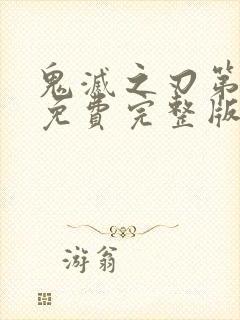 鬼滅之刃第
免費完整版
游翁